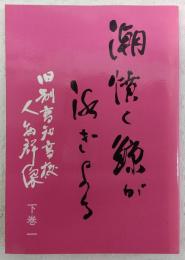 潮噴く鯨が
泳ぎよる
旧制高知高校
人物群像
下巻一